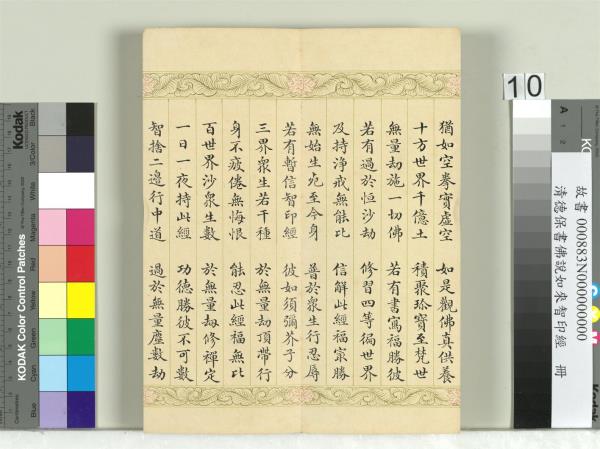 猶如空拳實虛空　如是觀佛真供養
十方世界千億土　積聚珍寶至梵世
無量劫施一切佛　若有書寫福勝彼
若有過於恒沙劫　修習四等徧世界
及持淨戒無能比　信解此經福最勝
無始生死至今身　普於眾生行忍辱
若有暫信智印經　彼如須彌芥子分
三界眾生若干種　於無量劫頂帶行
身不疲倦無悔恨　能忍此經福無比
百世界沙眾生數　於無量劫修禪定
一日一夜持此經　功德勝彼不可數
智捨二邊行中道　過於無量塵數劫
10
故書 000883N000000000
清德保書佛說如來智印經 冊
Kodak
KODAK Color Control Patches
Black
3/Color
White
Magenta
Red
Yellow
Green
Cyan
Blue
A 1 2